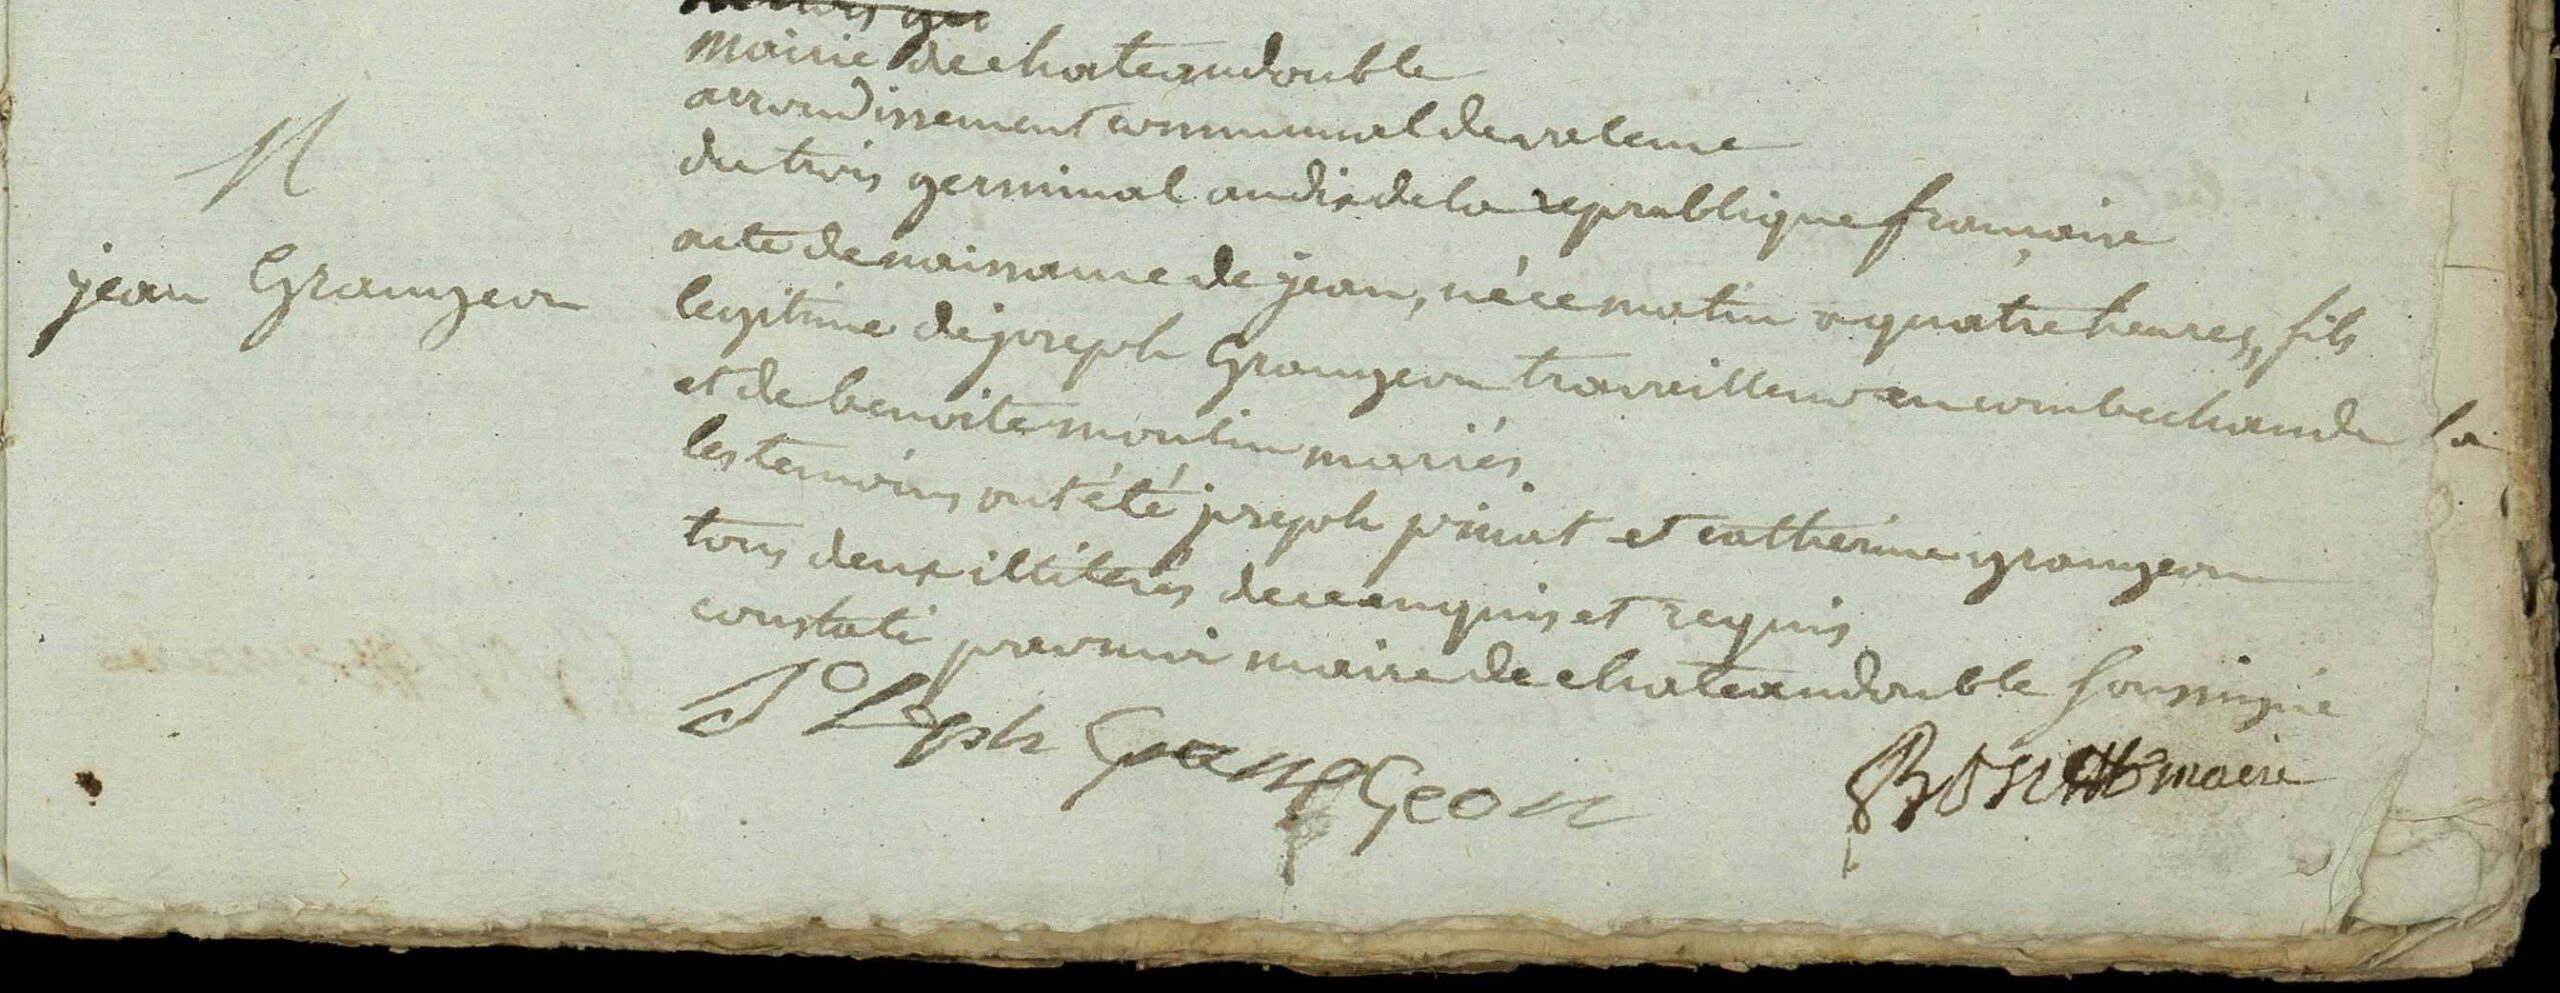 mairie de chateaudouble
arrondissement communal de valence
du trois germinal an dix de la republique française
N
acte de naissance de jean, né ce matin a quatre heures, fils
jean Grangeon
legitime de joseph Grangeon travailleur en combechaude la
et de benoite moulin mariés
les temoins ont été joseph pinat et catherine grangeon
tous deux illiterés de ce enquis et requis
constaté par moi maire de chateaudouble soussigné
Joseph GrangGeon
maire